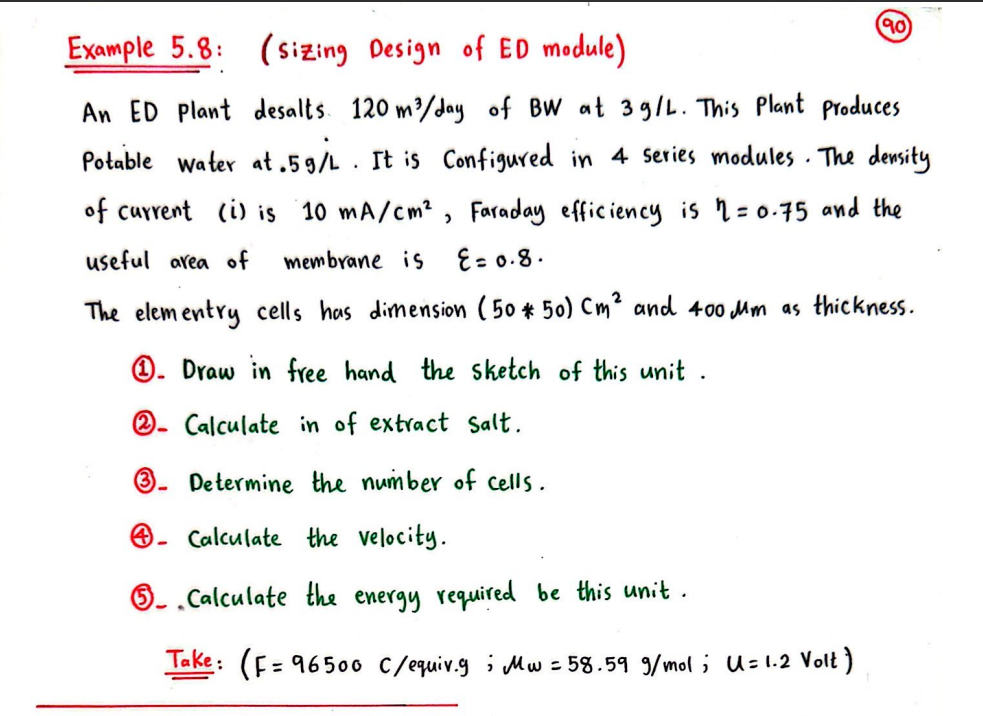 90
Example 5.8: (Sizing Design of ED module)
An ED Plant desalts 120 m³/day of BW at 3 g/L. This Plant Produces
Potable water at .5 g/L . It is Configured in 4 Series modules . The density
of current (i) is 10 mA/cm² , Faraday efficiency is η = 0.75 and the
useful area of membrane is ε = 0.8.
The elementry cells has dimension (50 * 50) Cm² and 400 Mm as thickness.
①- Draw in free hand the sketch of this unit .
②- Calculate in of extract salt.
③- Determine the number of cells.
④- Calculate the velocity.
⑤- Calculate the energy required be this unit .
Take: (F = 96500 C/equiv.g ; Mw = 58.59 g/mol ; U = 1.2 Volt)